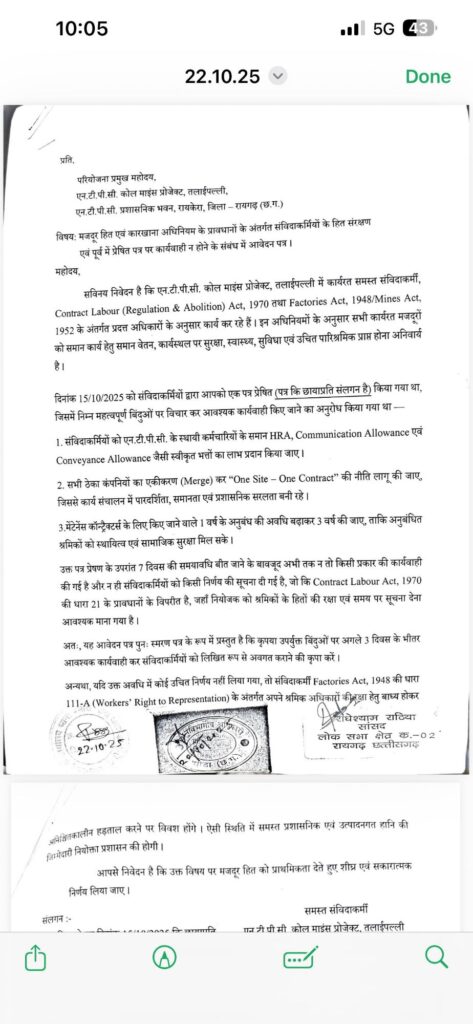 10:05
5G
43
22.10.25
Done
प्रति,
परियोजना प्रमुख महोदय,
एन.टी.पी.सी. कोल माइंस प्रोजेक्ट, तलाईपल्ली,
एन.टी.पी.सी. प्रशासनिक भवन, रायकेरा, जिला – रायगढ़ (छ.ग.)
विषय: मजदूर हित एवं कारखाना अधिनियम के प्रावधानों के अंतर्गत संविदाकर्मियों के हित संरक्षण
एवं पूर्व में प्रेषित पत्र पर कार्यवाही न होने के संबंध में आवेदन पत्र।
महोदय,
सविनय निवेदन है कि एन.टी.पी.सी. कोल माइंस प्रोजेक्ट, तलाईपल्ली में कार्यरत समस्त संविदाकर्मी,
Contract Labour (Regulation & Abolition) Act, 1970 तथा Factories Act, 1948/Mines Act,
1952 के अंतर्गत प्रदत्त अधिकारों के अनुसार कार्य कर रहे हैं। इन अधिनियमों के अनुसार सभी कार्यरत मजदूरों
को समान कार्य हेतु समान वेतन, कार्यस्थल पर सुरक्षा, स्वास्थ्य, सुविधा एवं उचित पारिश्रमिक प्राप्त होना अनिवार्य
है।
दिनांक 15/10/2025 को संविदाकर्मियों द्वारा आपको एक पत्र प्रेषित (पत्र कि छायाप्रति संलगन है) किया गया था,
जिसमें निम्न महत्वपूर्ण बिंदुओं पर विचार कर आवश्यक कार्यवाही किए जाने का अनुरोध किया गया था —
1. संविदाकर्मियों को एन.टी.पी.सी. के स्थायी कर्मचारियों के समान HRA, Communication Allowance एवं
Conveyance Allowance जैसी स्वीकृत भत्तों का लाभ प्रदान किया जाए।
2. सभी ठेका कंपनियों का एकीकरण (Merge) कर “One Site – One Contract” की नीति लागू की जाए,
जिससे कार्य संचालन में पारदर्शिता, समानता एवं प्रशासनिक सरलता बनी रहे।
3.मेंटेनेंस कॉन्ट्रैक्टर्स के लिए किए जाने वाले 1 वर्ष के अनुबंध की अवधि बढ़ाकर 3 वर्ष की जाए, ताकि अनुबंधित
श्रमिकों को स्थायित्व एवं सामाजिक सुरक्षा मिल सके।
उक्त पत्र प्रेषण के उपरांत 7 दिवस की समयावधि बीत जाने के बावजूद अभी तक न तो किसी प्रकार की कार्यवाही
की गई है और न ही संविदाकर्मियों को किसी निर्णय की सूचना दी गई है, जो कि Contract Labour Act, 1970
की धारा 21 के प्रावधानों के विपरीत है, जहाँ नियोजक को श्रमिकों के हितों की रक्षा एवं समय पर सूचना देना
आवश्यक माना गया है।
अतः, यह आवेदन पत्र पुनः स्मरण पत्र के रूप में प्रस्तुत है कि कृपया उपर्युक्त बिंदुओं पर अगले 3 दिवस के भीतर
आवश्यक कार्यवाही कर संविदाकर्मियों को लिखित रूप से अवगत कराने की कृपा करें।
अन्यथा, यदि उक्त अवधि में कोई उचित निर्णय नहीं लिया गया, तो संविदाकर्मी Factories Act, 1948 की धारा
111-A (Workers' Right to Representation) के अंतर्गत अपने श्रमिक अधिकारों की रक्षा हेतु बाध्य होकर
22.10.25
राधेश्याम राठिया
सांसद
लोक सभा क्षेत्र क.-02
रायगढ़ छत्तीसगढ़
अनिश्चितकालीन हड़ताल करने पर विवश होंगे। ऐसी स्थिति में समस्त प्रशासनिक एवं उत्पादनगत हानि की
जिम्मेदारी नियोक्ता प्रशासन की होगी।
आपसे निवेदन है कि उक्त विषय पर मजदूर हित को प्राथमिकता देते हुए शीघ्र एवं सकारात्मक
निर्णय लिया जाए।
संलगन :-
समस्त संविदाकर्मी
एन.टी.पी.सी. कोल माइंस प्रोजेक्ट, तलाईपल्ली